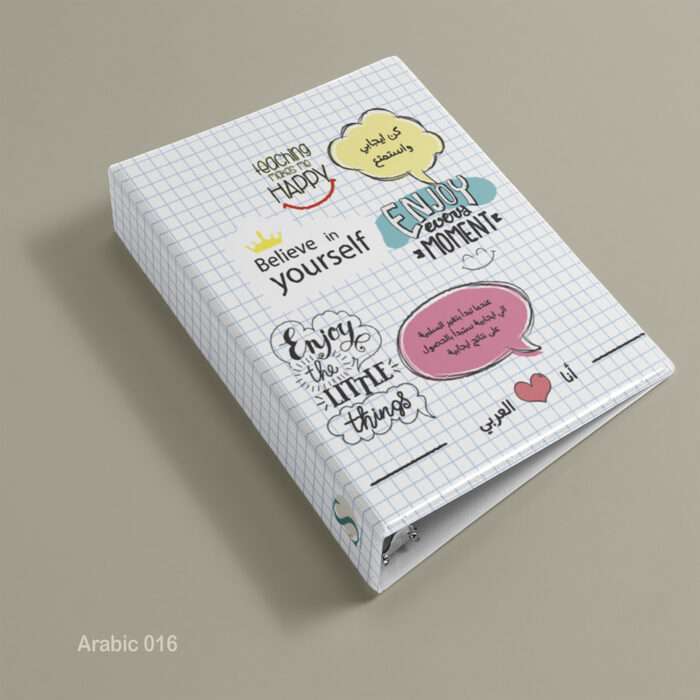 teaching
makes me
HAPPY
كن ايجابي
واستمتع
ENJOY
every
MOMENT
Believe in
yourself
عندما تبدأ بتغير السلبية
الي ايجابية ستبدأ بالحصول
على نتائج ايجابية
Enjoy
the
LITTLE
things
أنا ❤ العربي
S
Arabic 016